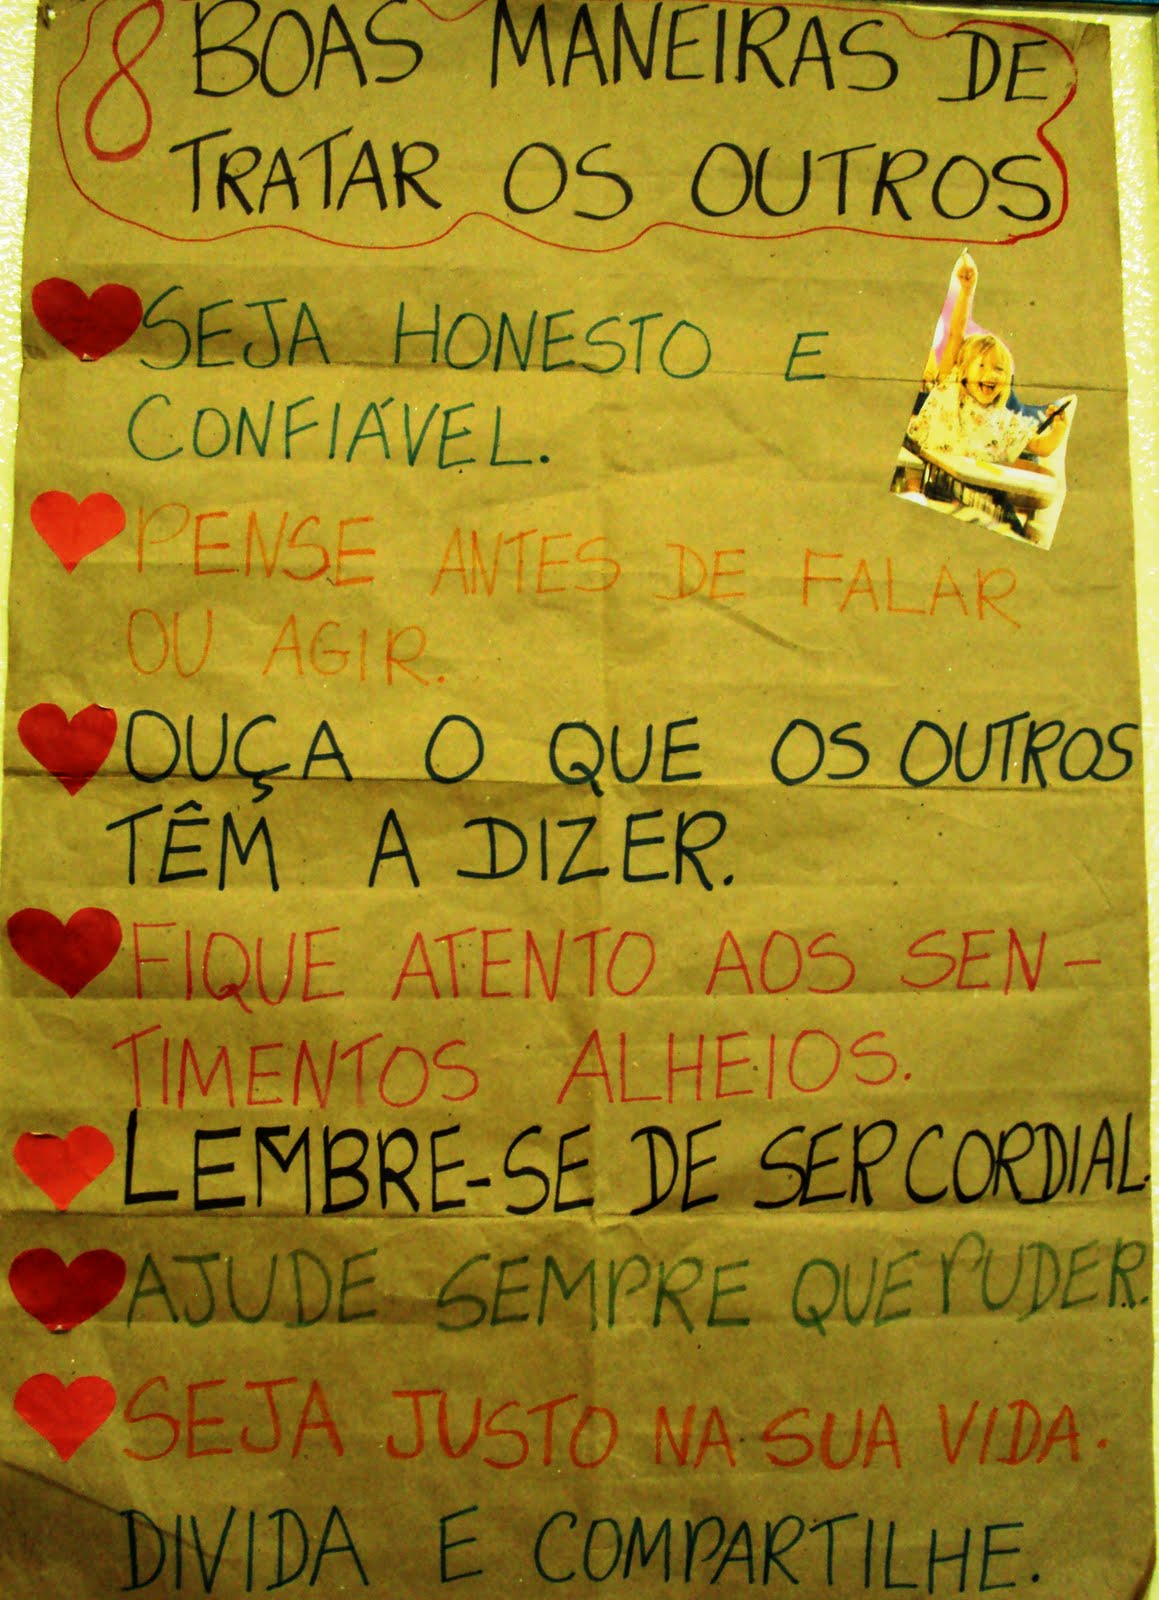 8 BOAS MANEIRAS DE
TRATAR OS OUTROS
SEJA HONESTO E
CONFIÁVEL.
PENSE ANTES DE FALAR
OU AGIR.
OUÇA O QUE OS OUTROS
TÊM A DIZER.
FIQUE ATENTO AOS SEN-
TIMENTOS ALHEIOS.
LEMBRE-SE DE SER CORDIAL.
AJUDE SEMPRE QUE PUDER.
SEJA JUSTO NA SUA VIDA.
DIVIDA E COMPARTILHE.